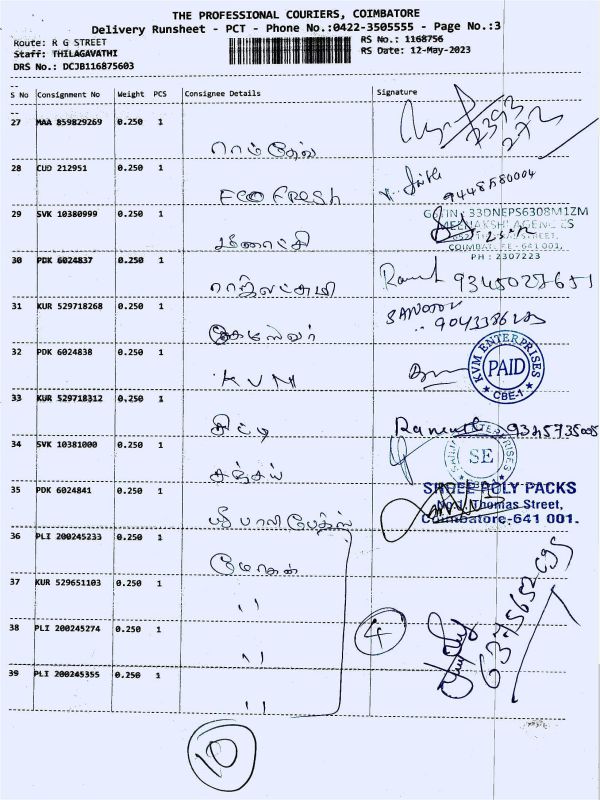 THE PROFESSIONAL COURIERS, COIMBATORE
Delivery Runsheet - PCT - Phone No.:0422-3505555 - Page No.:3
Route: R G STREET
RS No.: 1168756
Staff: THILAGAVATHI
RS Date: 12-May-2023
DRS No.: DCJB116875603
S No Consignment No Weight PCS Consignee Details Signature
27 MAA 859829269 0.250 1
28 CUD 212951 0.250 1
ECO FRESH
9448580004
29 SVK 10380999 0.250 1
மீனாட்சி
GSTIN: 33DNEPS6308M1ZM
MEENAKSHI AGENCIES
COIMBATORE - 641 001.
PH : 2307223
30 PDK 6024837 0.250 1
ராஜலட்சுமி
31 KUR 529718268 0.250 1
32 PDK 6024838 0.250 1
KVM
KVM ENTERPRISES
PAID
CBE-1
33 KUR 529718312 0.250 1
சிட்டி
34 SVK 10381000 0.250 1
சஞ்சய்
SE
35 PDK 6024841 0.250 1
ஸ்ரீ பாலி பேக்ஸ்
SHREE POLY PACKS
Thomas Street,
Coimbatore-641 001.
36 PLI 200245233 0.250 1
மோகன்
37 KUR 529651103 0.250 1
"
38 PLI 200245274 0.250 1
"
4
39 PLI 200245355 0.250 1
"
10